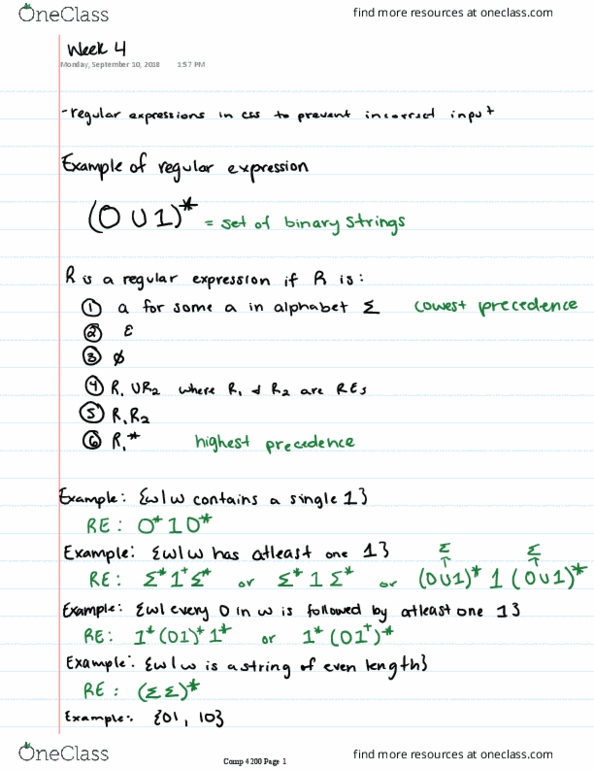 OneClass find more resources at oneclass.com
Week 4
Monday, September 10, 2018 1:57 PM
- regular expressions in css to prevent incorrect input
Example of regular expression
(0 ∪ 1)* = set of binary strings
R is a regular expression if R is:
① a for some a in alphabet Σ lowest precedence
② ε
③ ∅
④ R₁ ∪ R₂ where R₁ & R₂ are REs
⑤ R₁R₂
⑥ R₁* highest precedence
Example: {w|w contains a single 1}
RE: 0*10*
Example: {w|w has atleast one 1} Σ Σ
↑ ↑
RE: Σ*1⁺Σ* or Σ*1Σ* or (0∪1)*1(0∪1)*
Example: {w| every 0 in w is followed by atleast one 1}
RE: 1*(01)*1* or 1*(01⁺)*
Example: {w|w is a string of even length}
RE: (ΣΣ)*
Example: {01, 10}
OneClass Comp 4200 Page 1 find more resources at oneclass.com